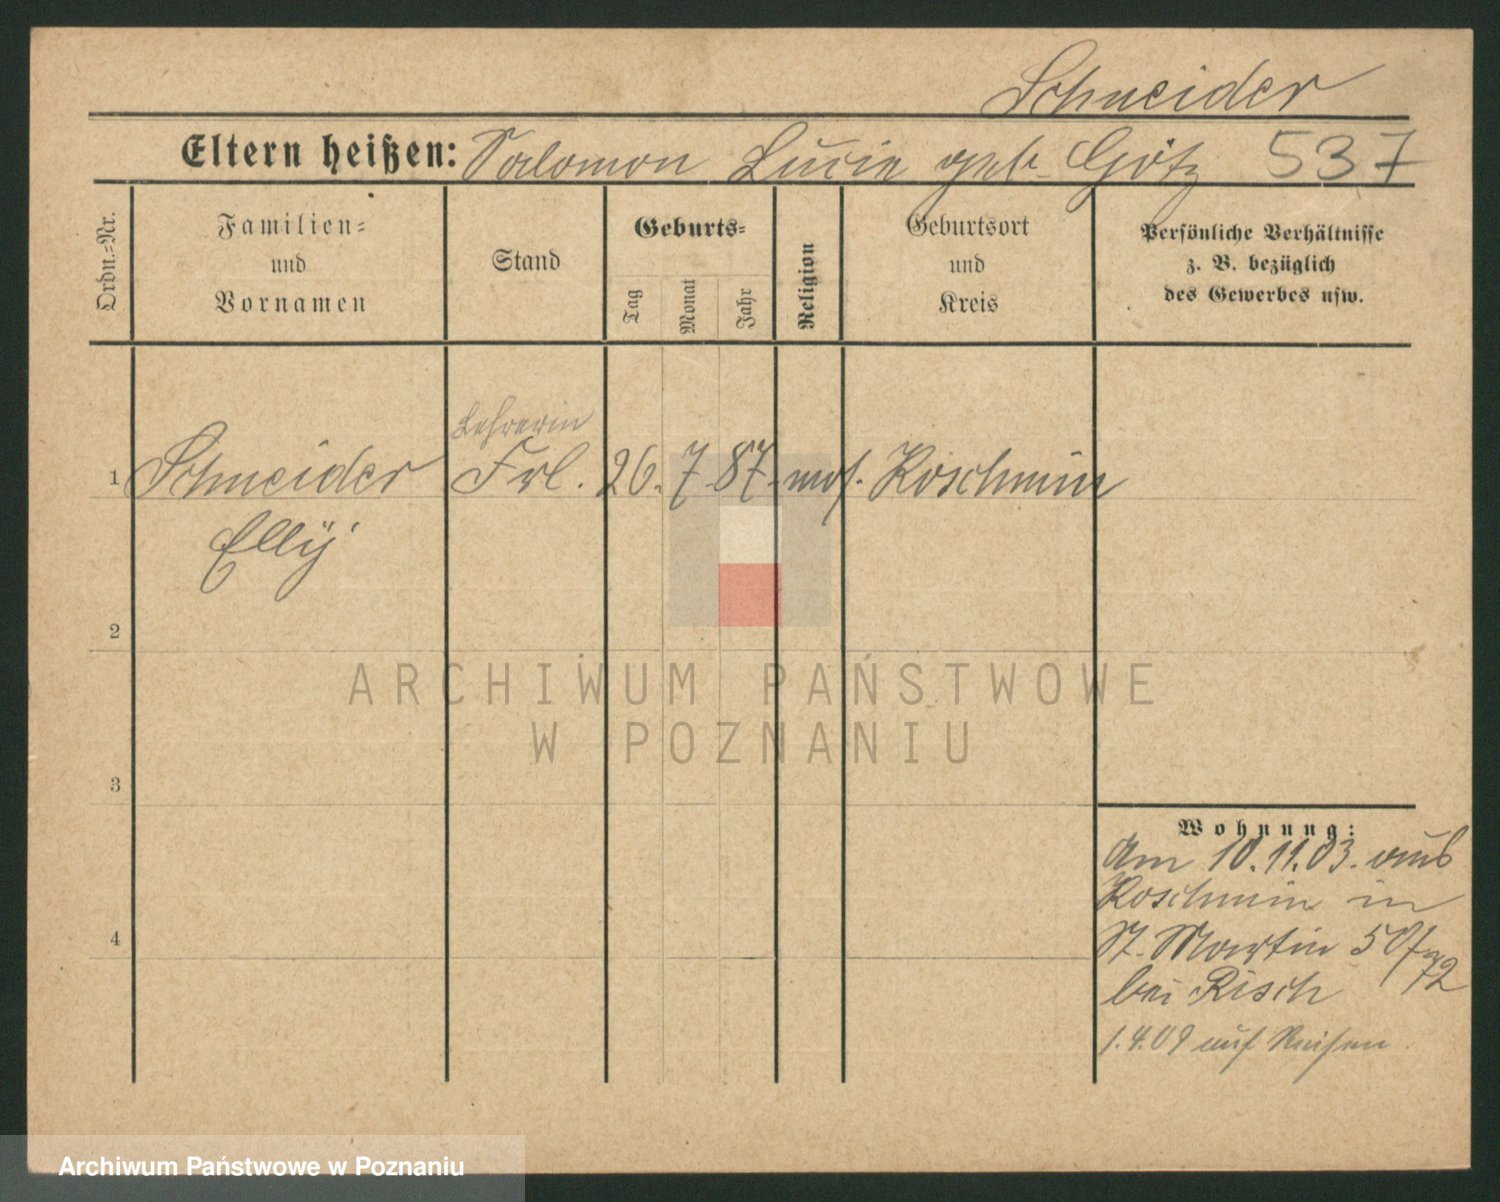 Schneider
Eltern heißen: Salomon Lucie geb. Götz 537
Ordn.-Nr.
Familien-
und
Vornamen
Stand
Geburts-
Tag
Monat
Jahr
Religion
Geburtsort
und
Kreis
Persönliche Verhältnisse
z. B. bezüglich
des Gewerbes usw.
Lehrerin
1 Schneider Frl. 26. 7. 87. mos. Koschmin
Elly
2
ARCHIWUM PAŃSTWOWE
W POZNANIU
3
Wohnung:
Am 10.11.03. aus
Koschmin in
St. Martin 50/
72
4
bei Risch
1.4.09 auf Reisen.
Archiwum Państwowe w Poznaniu